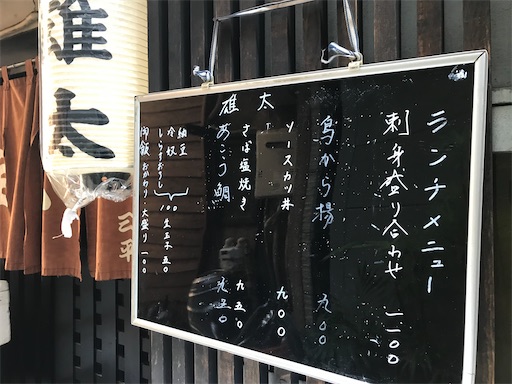 ランチメニュー
刺身盛り合わせ 一一〇〇
鳥から揚 九〇〇
ソースカツ丼 九〇〇
さば塩焼き 九五〇
あこう鯛 九五〇
雄太
納豆
冷奴
しらすおろし
100
生玉子 50
御飯 おかわり・大盛り 100
雄太
三平